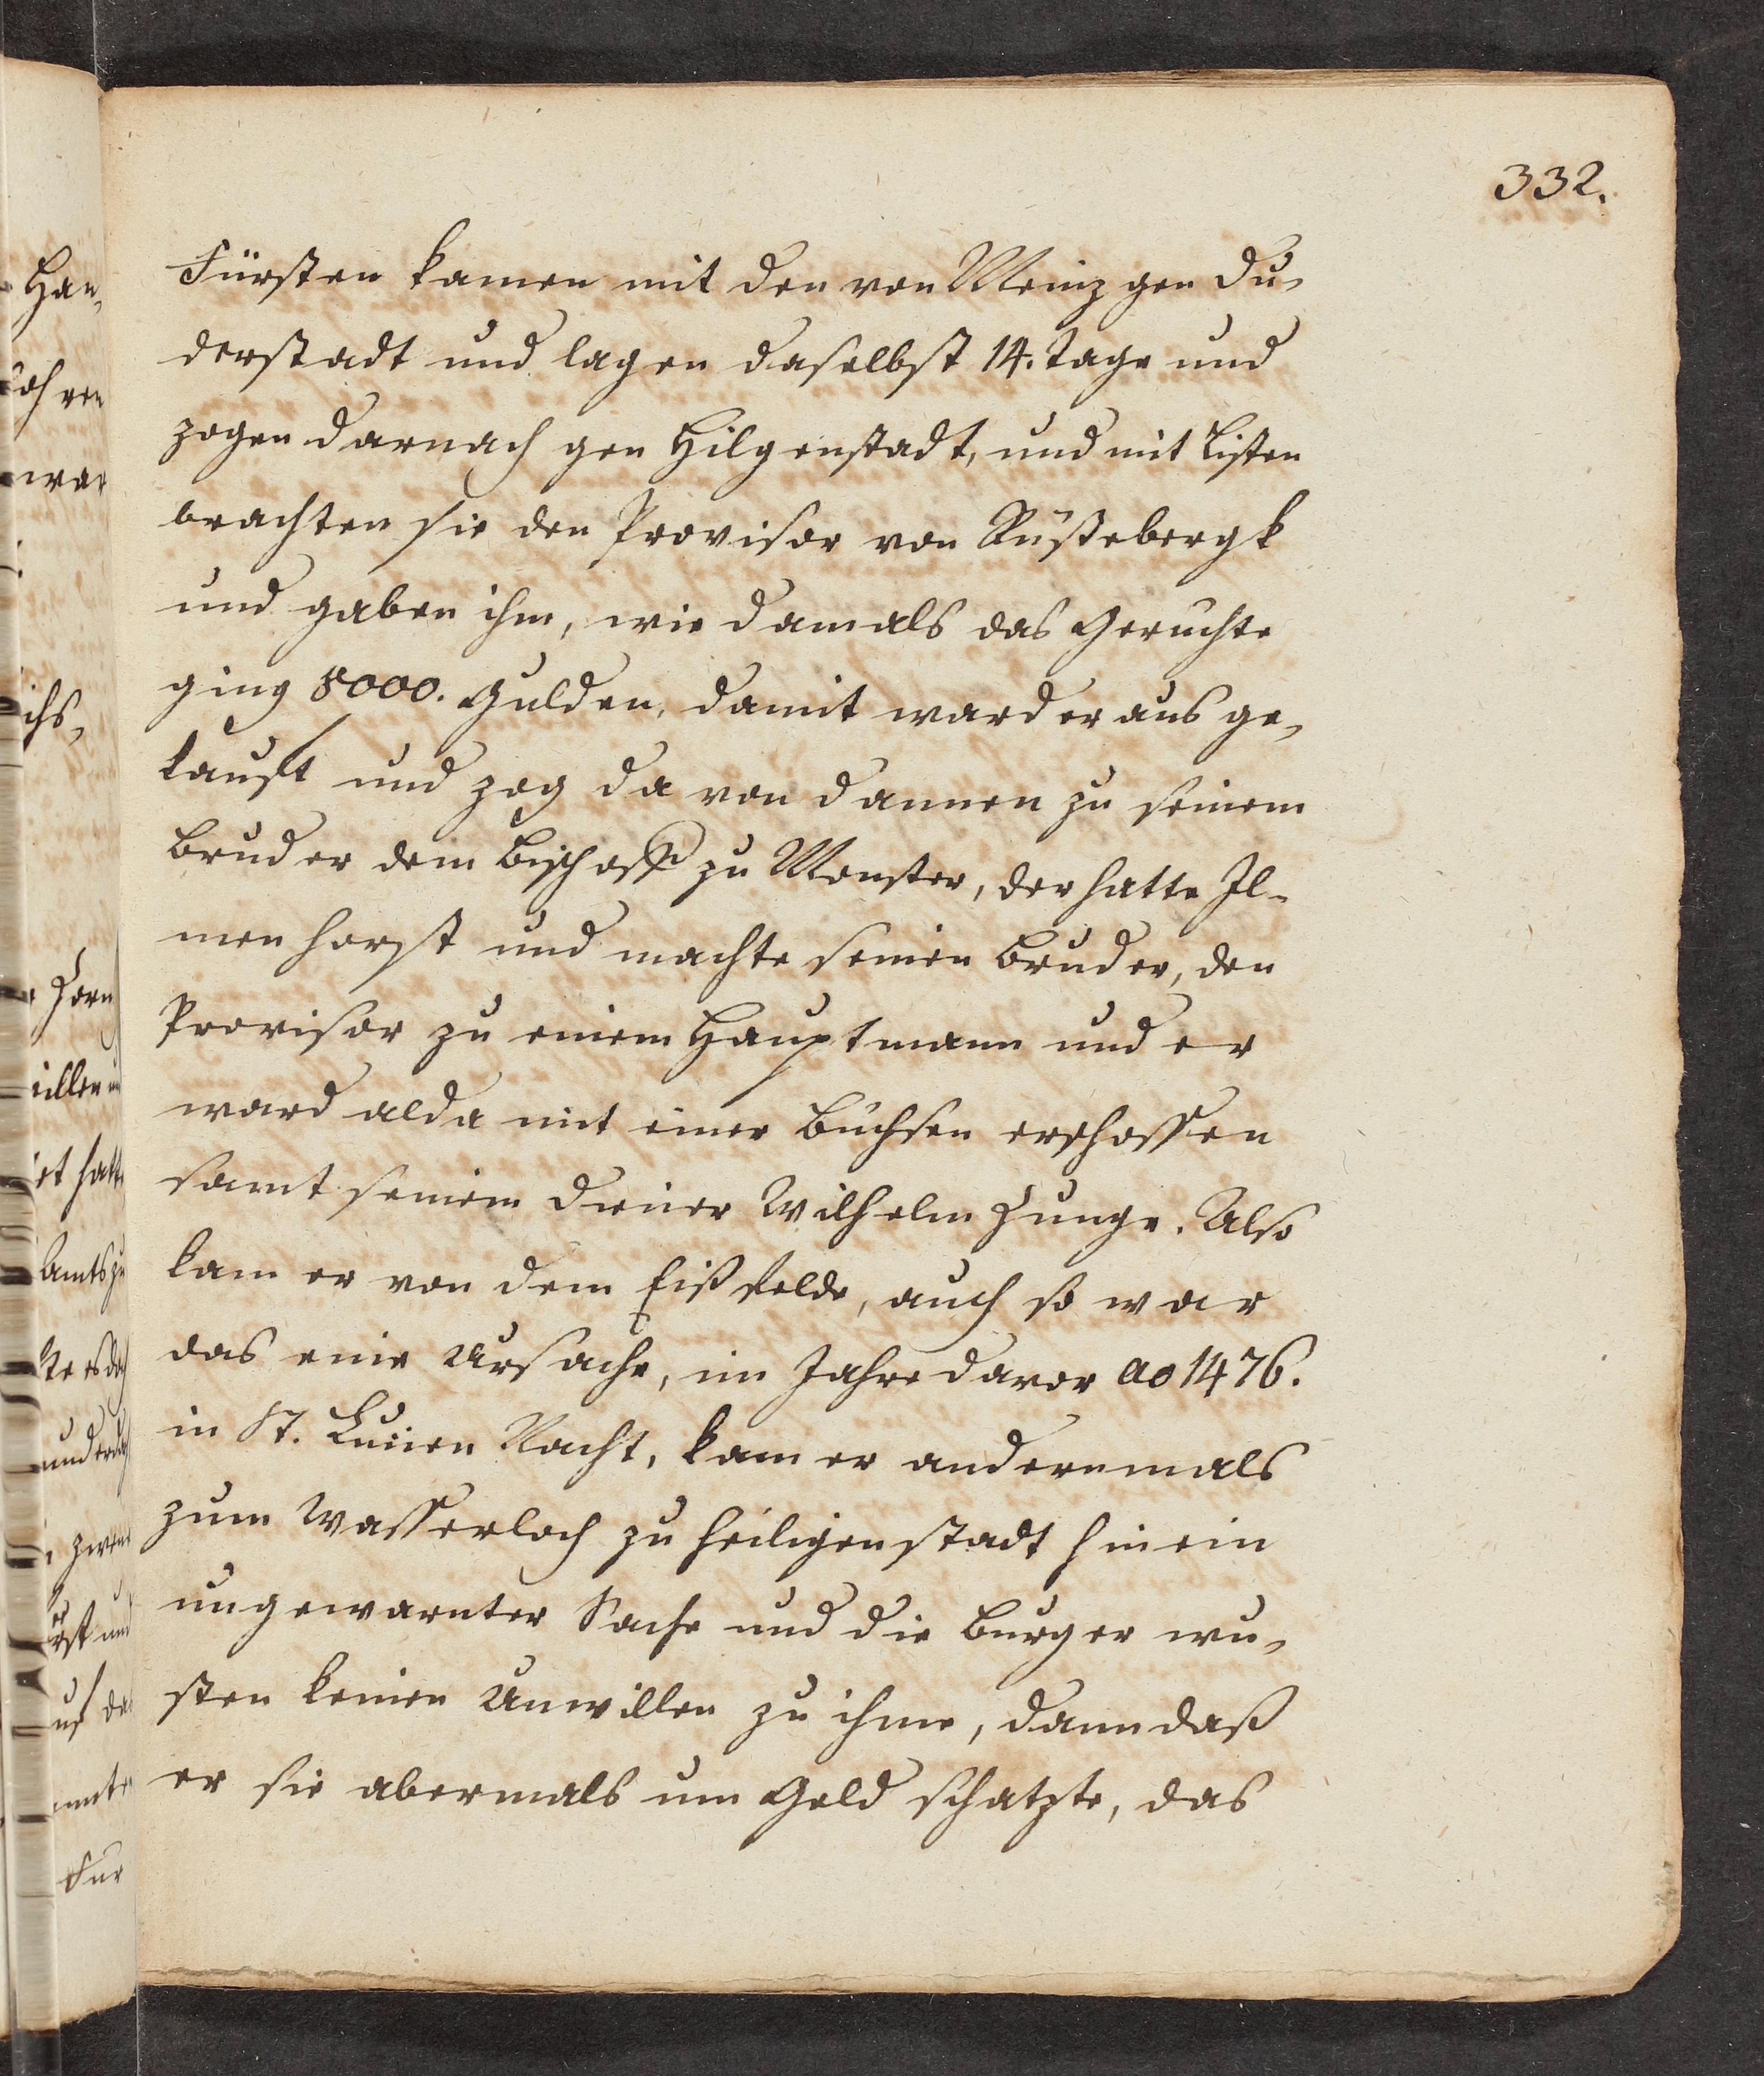 332.
Fürsten kamen mit den von Meinz gen Du-
derstadt und lagen daselbst 14. Tage und
zogen darnach gen Hilgenstadt, und mit Listen
brachten sie den Provisor von Rüstebergk
und gaben ihm, wie damals das Geruchte
ging 8000. Gulden, damit ward er aus ge-
kauft und zog da von dannen zu seinem
Bruder dem Bischoff zu Monster, der hatte Il-
menhorst und machte seinen Bruder, den
Provisor zu einem Hauptmann und er
ward alda mit einer Buchsen erschossen
samt seinem Diener Wilhelm Zunge. Also
kam er von dem Eißfelde, auch so war
das eine Ursache, im Jahre davor ao 1476.
in St. Lucien Nacht, kam er andernmals
zum Wasserloch zu Heiligenstadt hinein
ungewarnter Sache und die Burger wu-
sten keinen Unwillen zu ihme, dann daß
er sie abermals um Geld schatzte, das